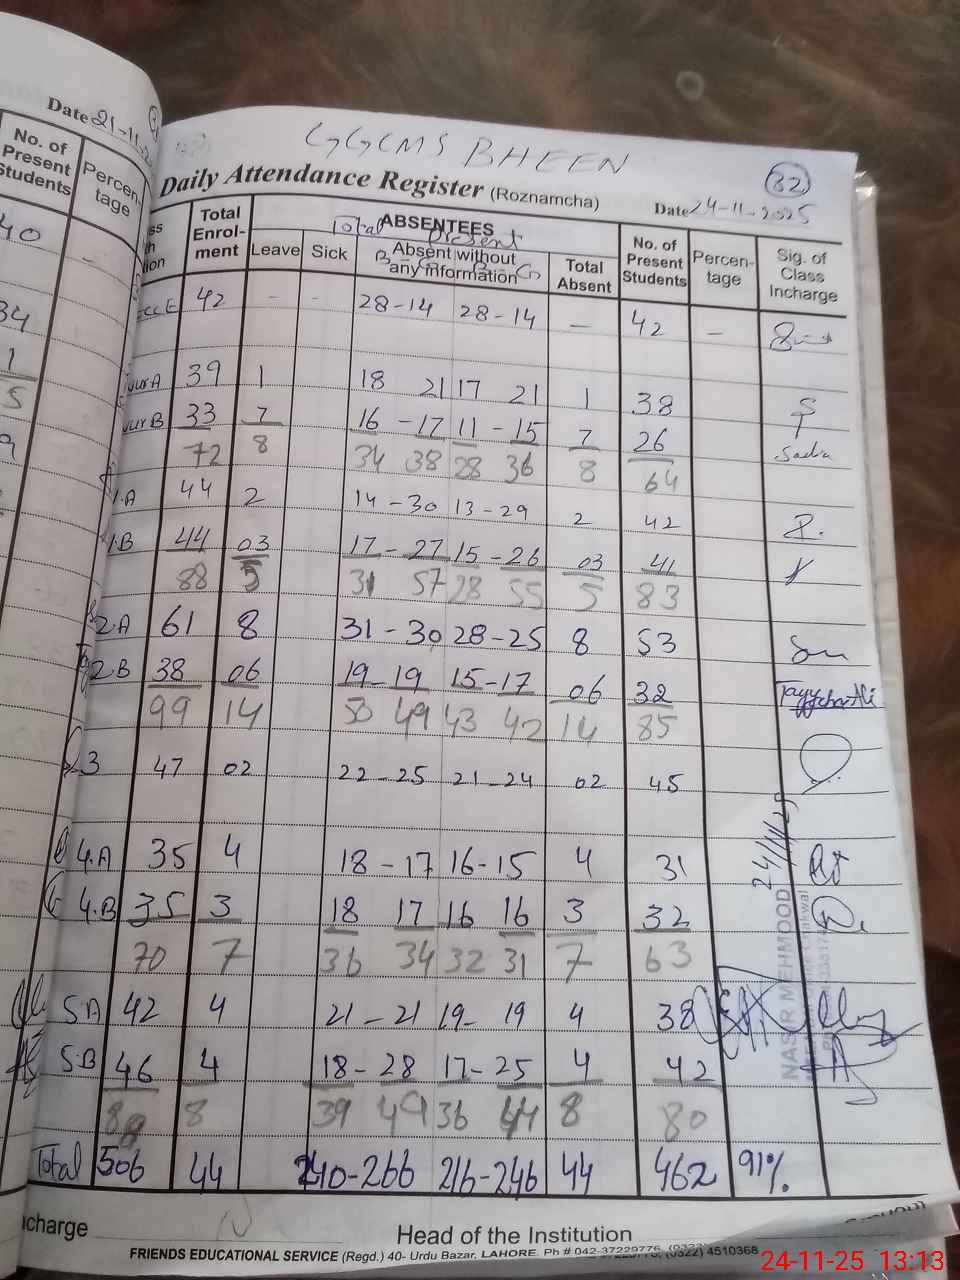 Date 21-11-
No. of Present Students
Percentage
40
34
1
5
9
GGCMS BHEEN
32
Daily Attendance Register (Roznamcha) Date 24-11-2025
Total Enrolment
ABSENTEES
Total Present
Leave Sick Absent without any information Total Absent
B - G B - G
No. of Present Students
Percentage
Sig. of Class Incharge
ECCE 42 - - 28-14 28-14 - 42 -
A 39 1 18 21 17 21 1 38
B 33 7 16 - 17 11 - 15 7 26 Sadia
72 8 34 38 28 36 8 64
1.A 44 2 14 - 30 13 - 29 2 42
1.B 44 03 17 - 27 15 - 26 03 41
88 5 31 57 28 55 5 83
2.A 61 8 31 - 30 28 - 25 8 53
2.B 38 06 19 - 19 15 - 17 06 32
99 14 50 49 43 42 14 85
3 47 02 22 - 25 21 - 24 02 45
4.A 35 4 18 - 17 16 - 15 4 31
4.B 35 3 18 17 16 16 3 32
70 7 36 34 32 31 7 63
5A 42 4 21 - 21 19 - 19 4 38
5.B 46 4 18 - 28 17 - 25 4 42
88 8 39 49 36 44 8 80
Total 506 44 240-266 216-246 44 462 91%
24/11/25
NASIR MEHMOOD
Head of the Institution
FRIENDS EDUCATIONAL SERVICE (Regd.) 40- Urdu Bazar, LAHORE. Ph # 042-37229776, (0322) 4510368
24-11-25 13:13